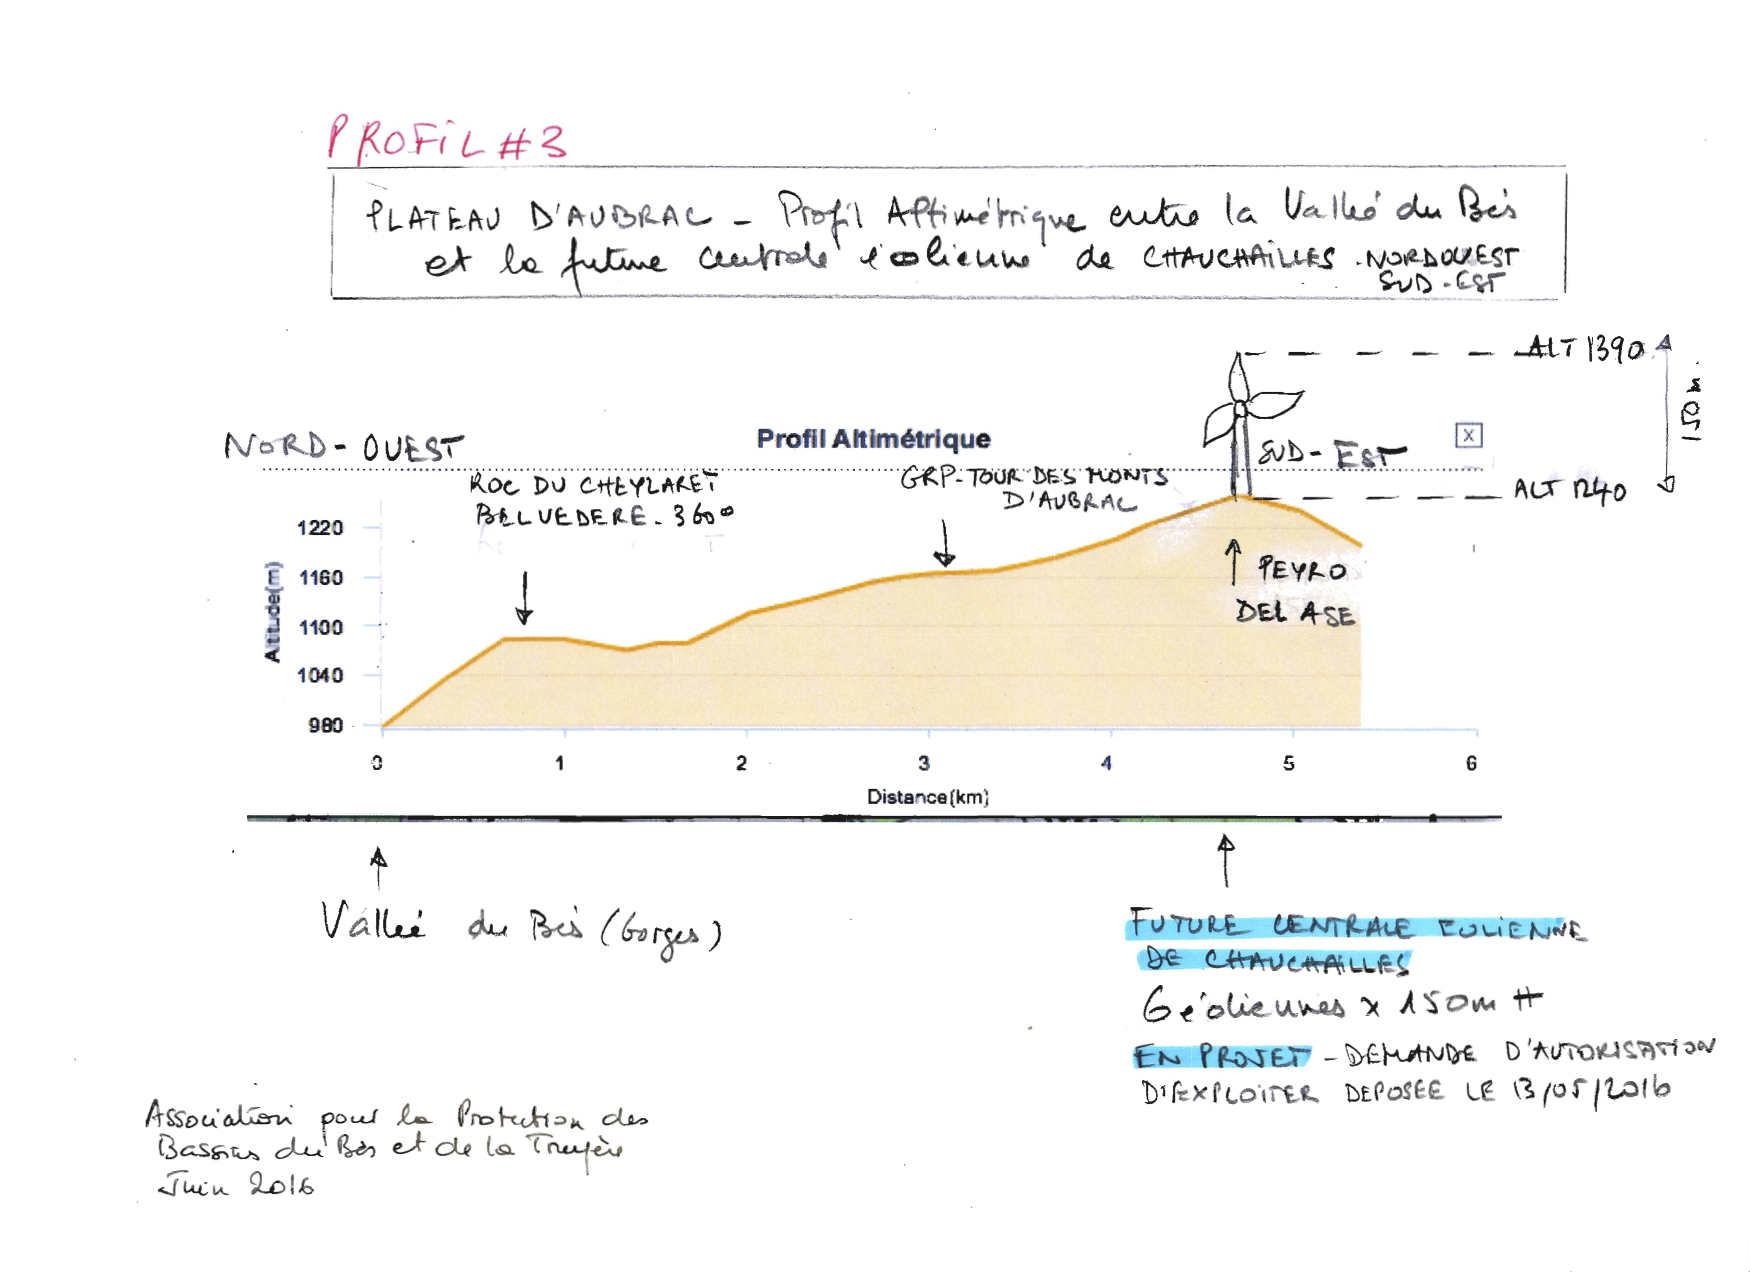 PROFIL #3
PLATEAU D'AUBRAC - Profil Altimétrique entre la Vallée du Bès
et la future centrale éolienne de CHAUCHAILLES - NORD OUEST
SUD-EST
ALT 1390
150 m
NORD-OUEST
Profil Altimétrique
X
SUD-EST
ROC DU CHEYLARET
BELVEDERE - 360°
GRP-TOUR DES MONTS
D'AUBRAC
ALT 1240
Altitude(m)
1220
1160
1100
1040
980
PEYRO
DEL ASE
0 1 2 3 4 5 6
Distance(km)
Vallée du Bès (Gorges)
FUTURE CENTRALE EOLIENNE
DE CHAUCHAILLES
6 éoliennes x 150m #
EN PROJET - DEMANDE D'AUTORISATION
D'EXPLOITER DEPOSEE LE 13/05/2016
Association pour la Protection des
Bassins du Bès et de la Truyère
Juin 2016